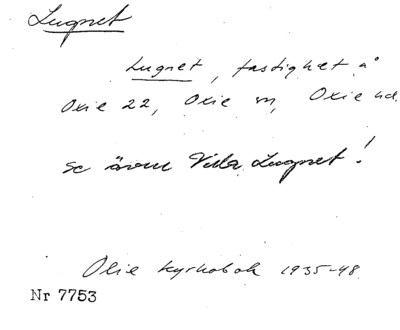 Lugnet
Lugnet, fastighet å
Oxie 22, Oxie sn, Oxie hd.
se även Villa Lugnet!
Oxie kyrkobok 1935-48.
Nr 7753